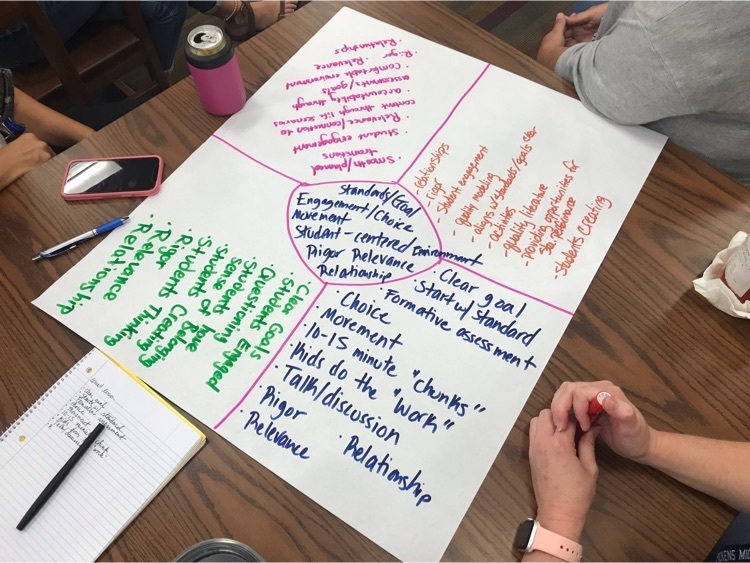 · Smooth/planned
transitions
· Student engagement
· Relevance/connection to
content through life scenarios
· accountability through
assessments/goals
· Comfortable environment
· Rigor · Relevance
· Relationships
- relationships
- rigor
- student engagement
- quality modeling
- aligns w/standards/goals clear
- activities
- quality literature
- providing opportunities for
stu. performance
- students creating
Standards/Goal
Engagement/Choice
Movement
Student-centered Environment
Rigor Relevance
Relationship
· Clear Goals
· Students Engaged
· Questioning
· Students have
Sense of Belonging
· Students Creating
· Students Thinking
· Rigor
· Relevance
· Relationship
· Clear goal
· Start w/ standard
· Formative assessment
· Choice
· Movement
· 10-15 minute "chunks"
· Kids do the "work"
· Talk/discussion
· Rigor
· Relevance
· Relationship